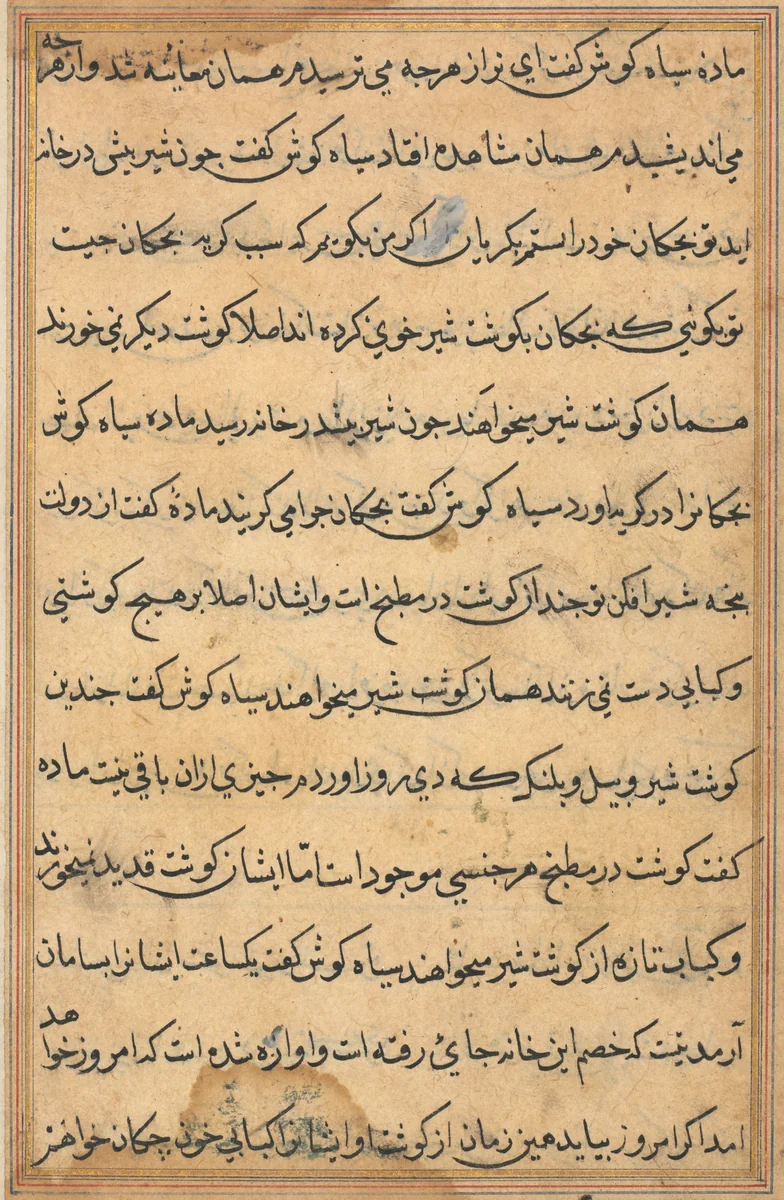 ماده سیاه کوش کفت ای نر از هرجه می ترسیدم همان معاینه شد و از هرجه
می اندیشیدم همان مشاهده افتاد سیاه کوش کفت جون شیر بیش در خانه
اید تو بجکان خود را ستم بکریان اکر من بکویم که سبب کریه بجکان جیست
تو بکوئی که بجکان بکوشت شیر خوی کرده اند اصلا کوشت دیکر نمی خورند
همان کوشت شیر میخواهند جون شیر بیش در خانه رسید ماده سیاه کوش
بجکانرا در کریه اورد سیاه کوش کفت بجکان جرا می کریند مادۀ کفت از دولت
بنجه شیر افکن تو جنداز کوشت در مطبخ است و ایشان اصلا بر هیج کوشتی
و کبابی دست نمی زنند همان کوشت شیر میخواهند سیاه کوش کفت جندین
کوشت شیر و بیل و بلنک که دی روز اوردم جیزی ازان باقی نیست ماده
کفت کوشت در مطبخ هر جنسی موجود است امّا ایشان کوشت قدید نمیخورند
و کباب تازه از کوشت شیر میخواهند سیاه کوش کفت یکساعت ایشانرا بسامان
آر مدتیست که خصم این خانه جائ رفته است و اوازه شده است که امروز خواهد
امد اکر امروز بیاید همین زمان از کوشت او ایشانرا کبابی خون جکان خواهم